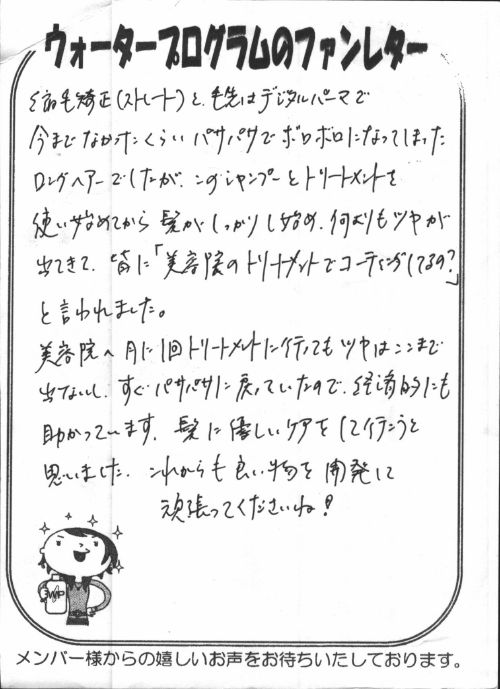 ウォータープログラムのファンレター
縮毛矯正(ストレート)と、毛先はデジタルパーマで
今までなかったくらい パサパサでボロボロになってしまった
ロングヘアーでしたが、このシャンプーとトリートメントを
使い始めてから 髪がしっかりし始め、何よりもツヤが
出てきて、皆に「美容院のトリートメントでコーティングしてるの?」
と言われました。
美容院へ月に1回トリートメントに行ってもツヤはここまで
出ないし、すぐパサパサに戻っていたので、経済的にも
助かっています。髪に優しいケアをして行こうと
思いました。これからも良い物を開発して
頑張ってくださいね!
WP
メンバー様からの嬉しいお声をお待ちいたしております。